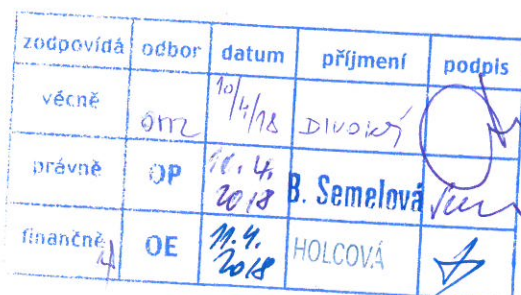 zodpovídá odbor datum příjmení podpis
věcně 10/4/18 DIVOKÝ
právně OP 2018 B. Semelová
finančně OE 11.4. 2018 HOLCOVÁ